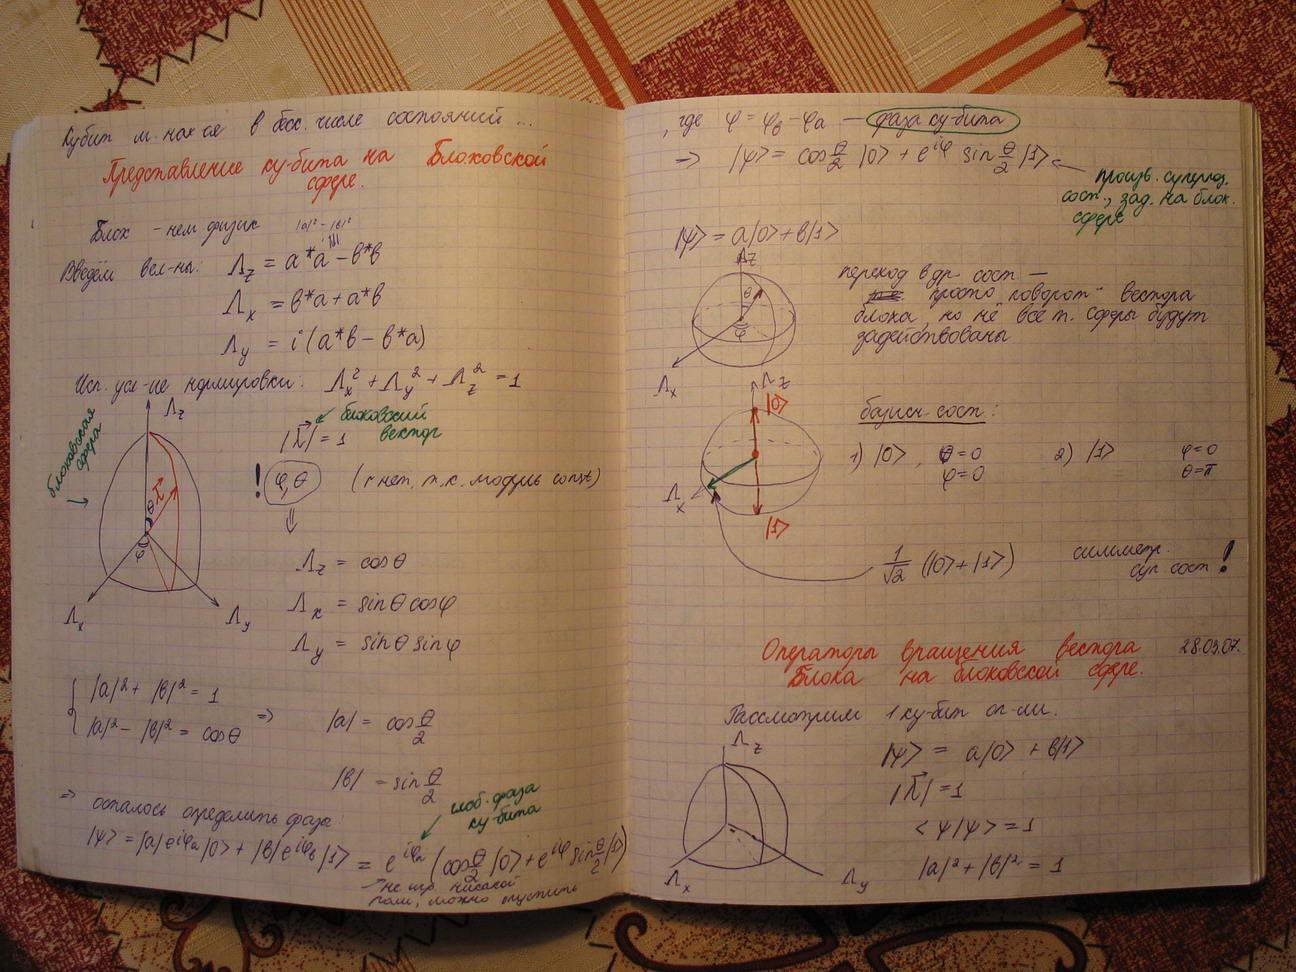 Кубит м. нах-ся в беск. числе состояний ...
Представление ку-бита на Блоховской
сфере.
Блох - нем. физик |a|² - |b|²
Введём вел-ны: Λz = a*a - b*b
Λx = b*a + a*b
Λy = i(a*b - b*a)
Исп. усл-ие нормировки: Λx² + Λy² + Λz² = 1
блоховская
сфера
Λz
θ
Λ⃗
φ
Λx
Λy
|Λ⃗| = 1
блоховский
вектор
! φ, θ (r нет, т.к. модуль const)
⇓
Λz = cosθ
Λx = sinθ cosφ
Λy = sinθ sinφ
{ |a|² + |b|² = 1
|a|² - |b|² = cosθ
=> |a| = cos θ/2
|b| = sin θ/2
=> осталось определить фаза:
глоб. фаза
ку-бита
|ψ> = |a|e^{iφa}|0> + |b|e^{iφb}|1> = e^{iφa}(cos θ/2 |0> + e^{iφ} sin θ/2 |1>)
не игр. никакой
роли, можно опустить
, где φ = φb - φa — фаза ку-бита
=> |ψ> = cos θ/2 |0> + e^{iφ} sin θ/2 |1>
произв. суперпоз.
сост., зад. на блох.
сфере
|ψ> = a|0> + b|1>
Λz
θ
φ
Λx
переход в др. сост —
просто "поворот" вектора
блоха, но не все т. сферы будут
задействованы
Λz
|0>
Λx
|1>
базисн. сост:
1) |0>, θ=0
φ=0
2) |1> φ=0
θ=π
1/√2 (|0>+|1>)
симметр.
суп. сост!
Операторы вращения вектора
Блоха на блоховской сфере.
28.03.07.
Рассмотрим 1 ку-бит оп-ии.
Λz
Λx
Λy
|ψ> = a|0> + b|1>
|Λ⃗| = 1
<ψ|ψ> = 1
|a|² + |b|² = 1